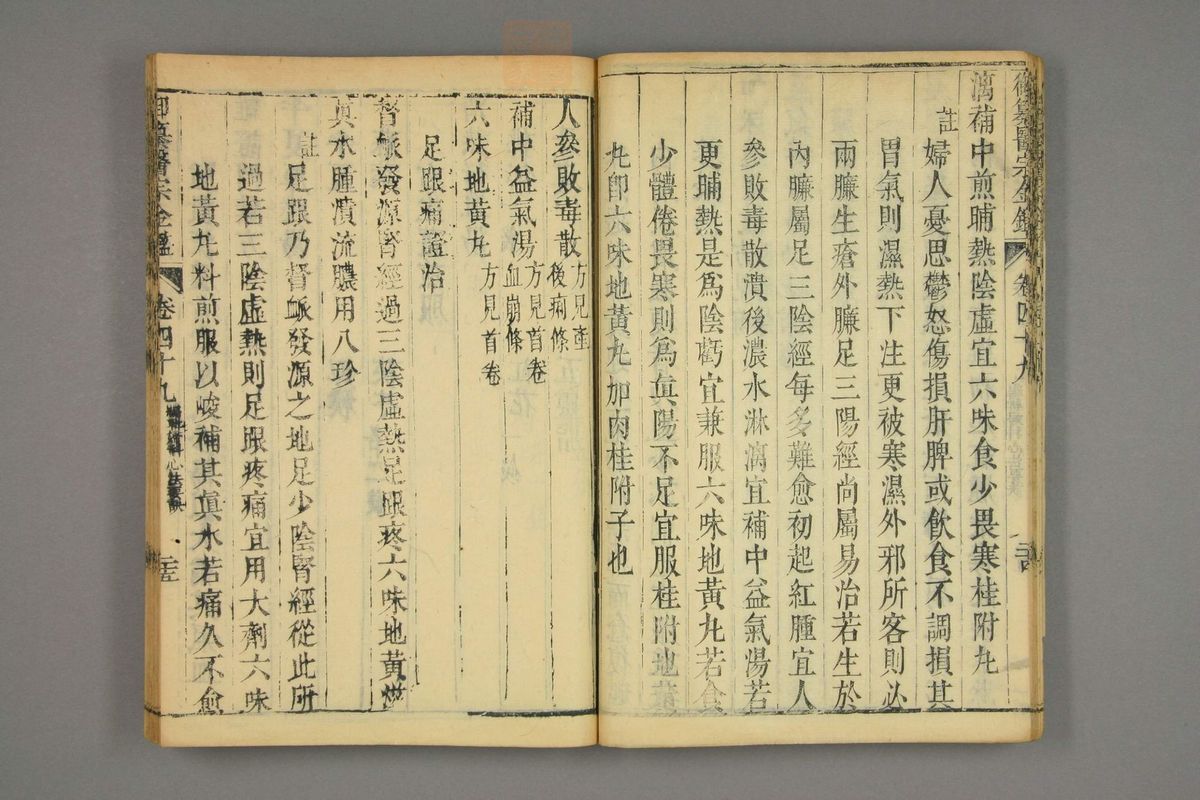 御纂醫宗金鑑 卷四十九 二十四
漓補中煎晡熱陰虛宜六味食少畏寒桂附丸
註婦人憂思鬱怒傷損肝脾或飲食不調損其
胃氣則濕熱下注更被寒濕外邪所客則必
兩臁生瘡外臁足三陽經尚屬易治若生於
內臁屬足三陰經每多難愈初起紅腫宜人
參敗毒散潰後濃水淋漓宜補中益氣湯若
更晡熱是爲陰虧宜兼服六味地黃丸若食
少體倦畏寒則爲眞陽不足宜服桂附地黃
丸卽六味地黃丸加肉桂附子也
人參敗毒散 方見產後痢條
補中益氣湯 方見首卷血崩條
六味地黃丸 方見首卷
足跟痛證治
督脈發源腎經過三陰虛熱足跟疼六味地黃滋
眞水腫潰流膿用八珍
註足跟乃督脈發源之地足少陰腎經從此所
過若三陰虛熱則足跟疼痛宜用大劑六味
地黃丸料煎服以峻補其眞水若痛久不愈
御纂醫宗金鑑 卷四十九 心法要訣 二十五